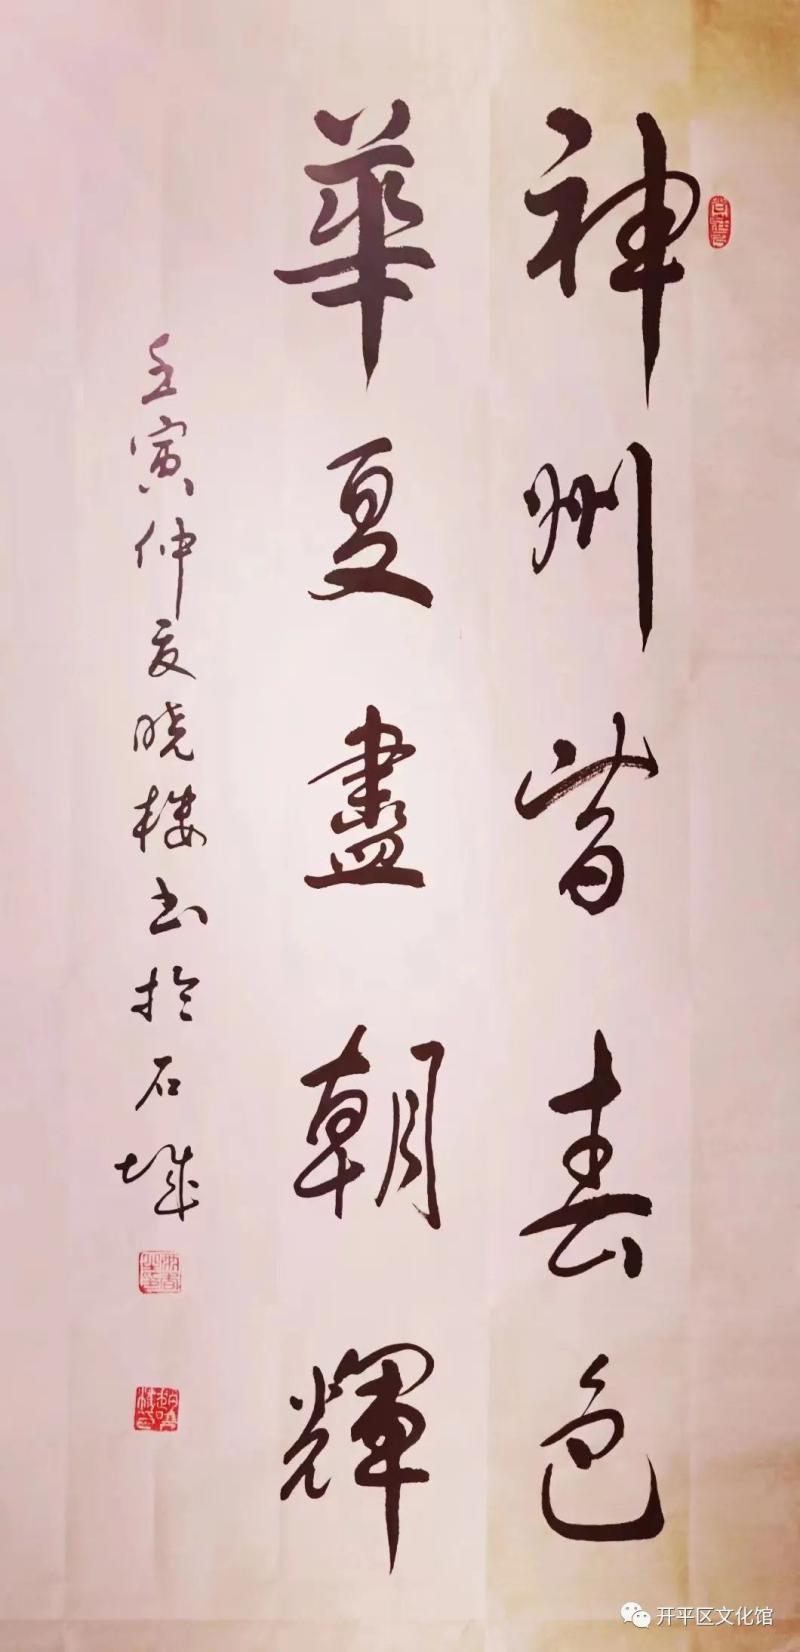 神州皆春色
華夏盡朝輝
壬寅仲夏晓楼书於石城
开平区文化馆